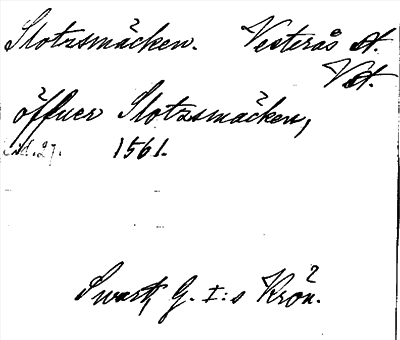 Slotzsmäcken. Vesterås st.
Vstl.
öffuer Slotzsmäcken,
sid. 27. 1561.
Swart, G. I:s Krön.